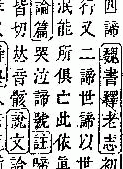 四諦魏書釋老志初
行又二諦世諦以世
泯能所俱亡此依
論篇哭泣諦號註諦
皆切𠀤音骸說文論